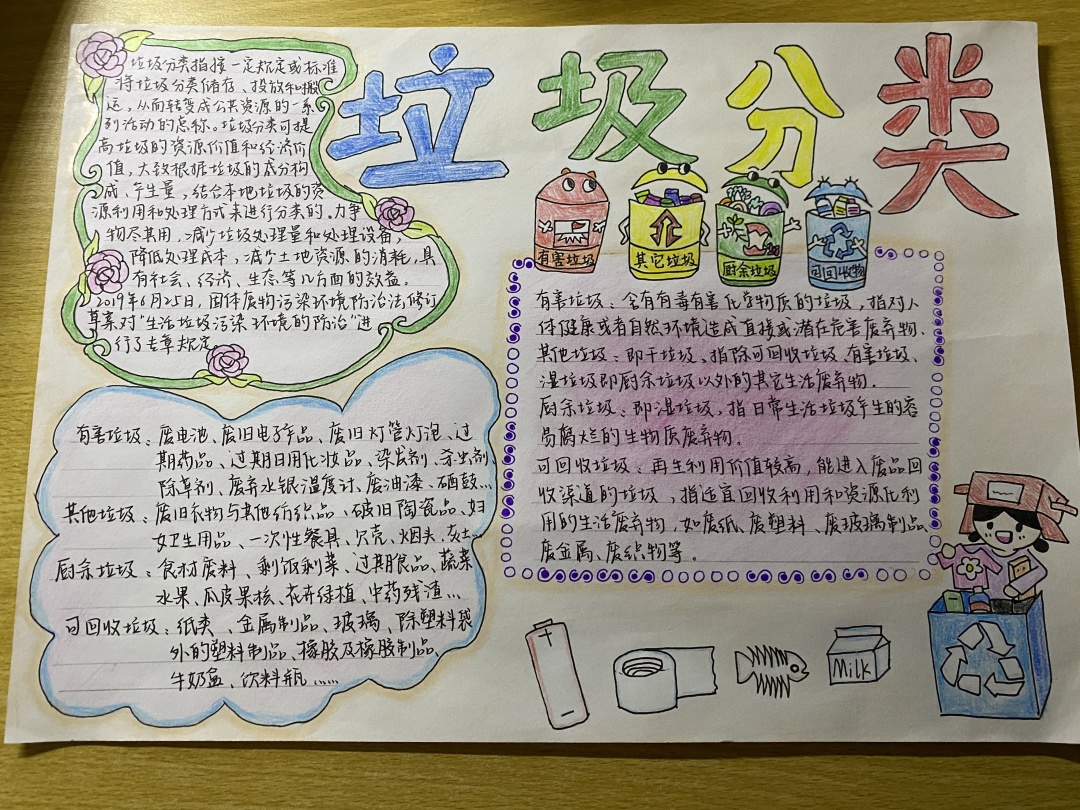 垃圾分类
垃圾分类指按一定规定或标准
将垃圾分类储存、投放和搬
运，从而转变成公共资源的一系
列活动的总称。垃圾分类可提
高垃圾的资源价值和经济价
值，大致根据垃圾的成分构
成、产生量，结合本地垃圾的资
源利用和处理方式来进行分类的。力争
物尽其用，减少垃圾处理量和处理设备，
降低处理成本，减少土地资源的消耗，具
有社会、经济、生态等几方面的效益。
2019年6月25日，固体废物污染环境防治法修订
草案对“生活垃圾污染环境的防治”进
行了专章规定
有害垃圾
其它垃圾
厨余垃圾
可回收物
有害垃圾：含有有毒有害化学物质的垃圾，指对人
体健康或者自然环境造成直接或潜在危害废弃物.
其他垃圾：即干垃圾、指除可回收垃圾、有害垃圾、
湿垃圾即厨余垃圾以外的其它生活废弃物.
厨余垃圾：即湿垃圾，指日常生活垃圾产生的容
易腐烂的生物质废弃物.
可回收垃圾：再生利用价值较高，能进入废品回
收渠道的垃圾，指适宜回收利用和资源化利
用的生活废弃物，如废纸、废塑料、废玻璃制品、
废金属、废织物等.
有害垃圾：废电池、废旧电子产品、废旧灯管灯泡、过
期药品、过期日用化妆品、染发剂、杀虫剂、
除草剂、废弃水银温度计、废油漆、硒鼓...
其他垃圾：废旧衣物与其他纺织品、破旧陶瓷品、妇
女卫生用品、一次性餐具、贝壳、烟头、灰土...
厨余垃圾：食材废料、剩饭剩菜、过期食品、蔬菜
水果、瓜皮果核、花卉绿植、中药残渣...
可回收垃圾：纸类、金属制品、玻璃、除塑料袋
外的塑料制品、橡胶及橡胶制品、
牛奶盒、饮料瓶......
Milk